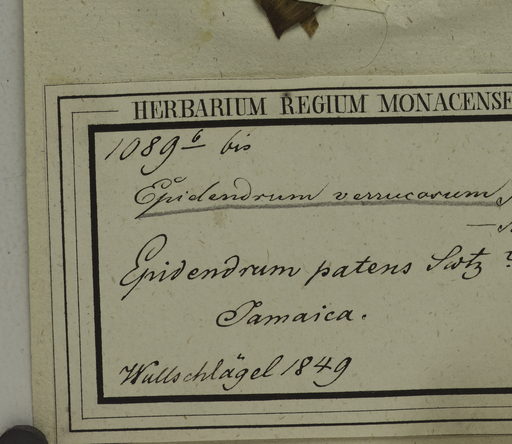 HERBARIUM REGIUM MONACENSE
1089 b bis
Epidendrum verrucosum
Epidendrum patens Swtz ?
Jamaica.
Wullschlägel 1849